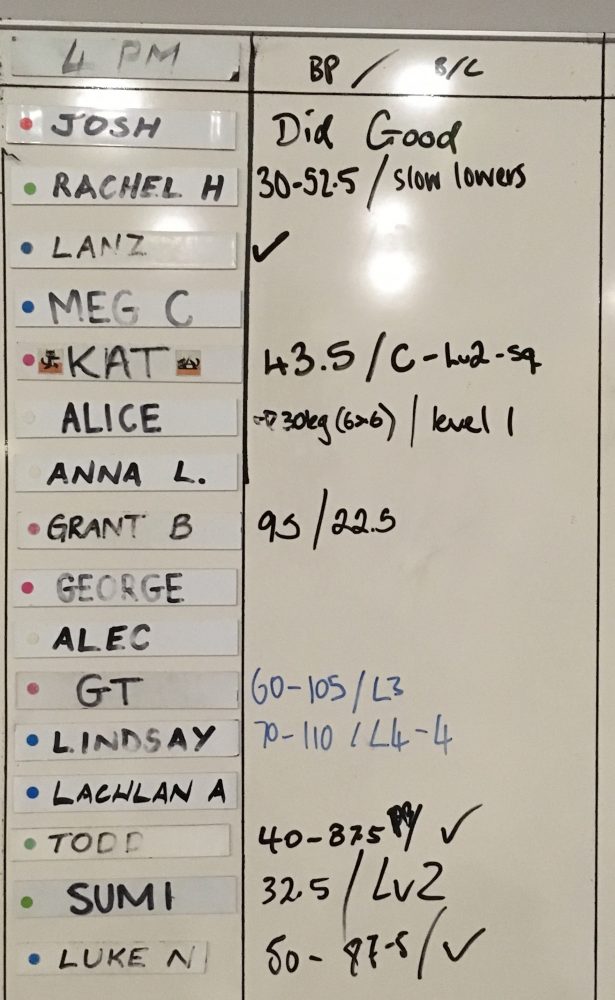 4 PM BP / B/C
JOSH Did Good
RACHEL H 30-52.5 / slow lowers
LANZ ✓
MEG C
KAT 43.5 / C-Lv2-sq
ALICE 30kg (6x6) | level 1
ANNA L.
GRANT B 95 / 22.5
GEORGE
ALEC
GT 60-105 / L3
LINDSAY 70-110 / L4-4
LACHLAN A
TODD 40-87.5 / ✓
SUMI 32.5 / Lv2
LUKE N 50-87.5 / ✓